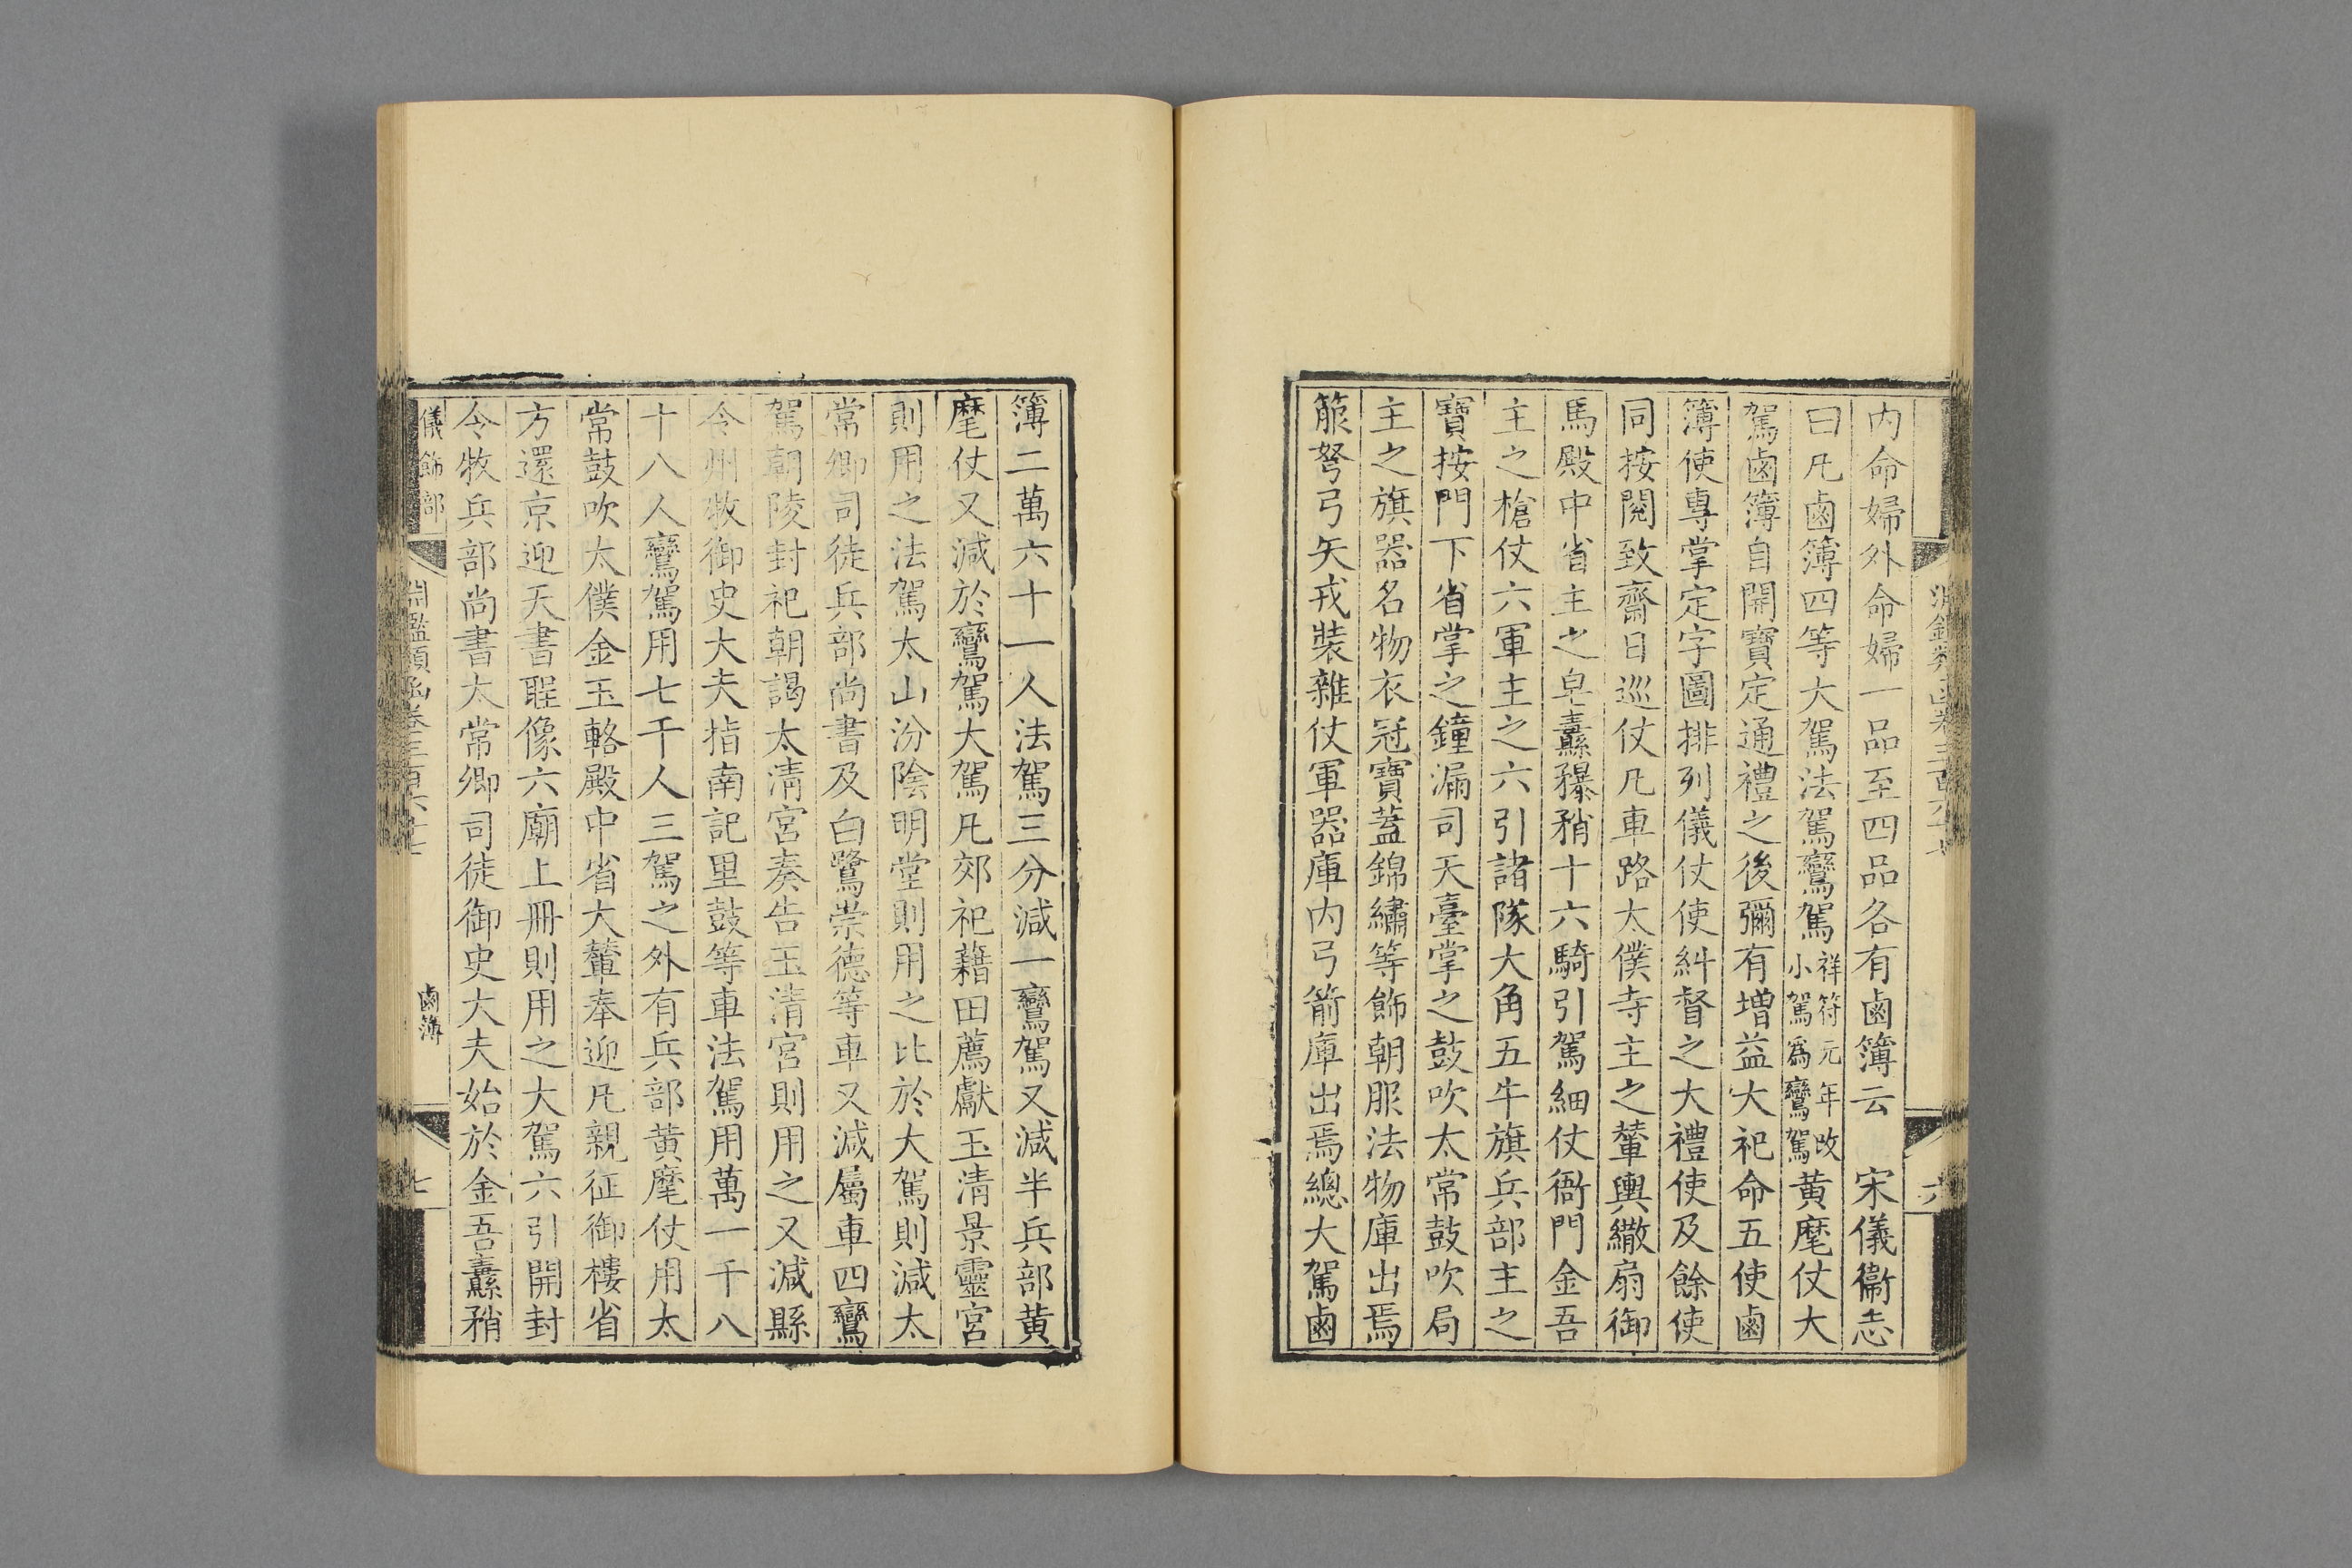 内命婦外命婦一品至四品各有鹵簿云　宋儀衞志
曰凡鹵簿四等大駕法駕鸞駕祥符元年改小駕爲鸞駕黄麾仗大
駕鹵簿自開寶定通禮之後彌有增益大祀命五使鹵
簿使專掌定字圖排列儀仗使糾督之大禮使及餘使
同按閱致齋日巡仗凡車路太僕寺主之輦輿繖扇御
馬殿中省主之皁纛䂍矟十六騎引駕細仗衙門金吾
主之槍仗六軍主之六引諸隊大角五牛旗兵部主之
寶按門下省掌之鐘漏司天臺掌之鼓吹太常鼓吹局
主之旗器名物衣冠寶蓋錦繡等飾朝服法物庫出焉
箙弩弓矢戎裝雜仗軍器庫内弓箭庫出焉總大駕鹵
簿二萬六十一人法駕三分減一鸞駕又減半兵部黄
麾仗又減於鸞駕大駕凡郊祀藉田薦獻玉清景靈宮
則用之法駕太山汾陰明堂則用之比於大駕則減太
常卿司徒兵部尚書及白鷺崇德等車又減屬車四鸞
駕朝陵封祀朝謁太清宮奏告玉清宮則用之又減縣
令州牧御史大夫指南記里鼓等車法駕用萬一千八
十八人鸞駕用七千人三駕之外有兵部黄麾仗用太
常鼓吹太僕金玉輅殿中省大輦奉迎凡親征御樓省
方還京迎天書聖像六廟上冊則用之大駕六引開封
令牧兵部尚書太常卿司徒御史大夫始於金吾纛矟
儀飾部
淵鑑類函卷三百六十七
鹵簿
七